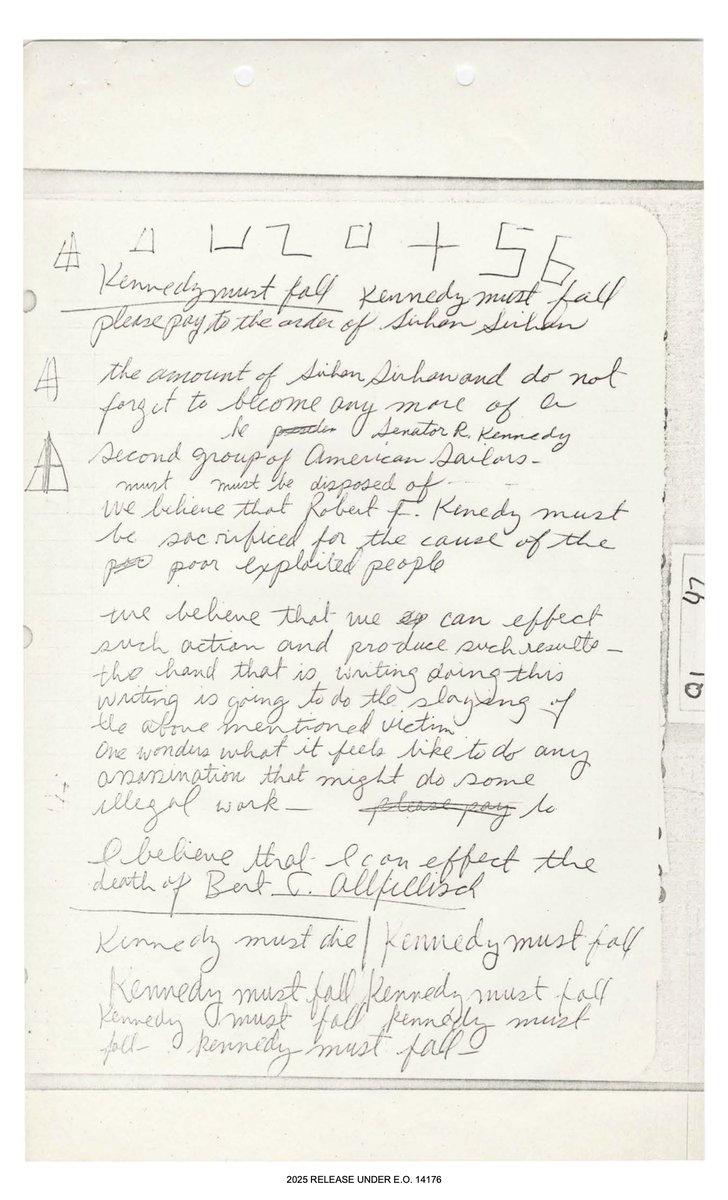 56
Kennedy must fall Kennedy must fall
please pay to the order of Sirhan Sirhan
the amount of Sirhan Sirhan and do not
forget to become any more of a
be Senator R. Kennedy
second group of American Sailors -
must must be disposed of
We believe that Robert F. Kenedy must
be sacrificed for the cause of the
poor exploited people
we believe that we can effect
such action and produce such results -
the hand that is writing doing this
writing is going to do the slaying of
the above mentioned victim
One wonders what it feels like to do any
assasination that might do some
illegal work - please pay to
I believe that I can effect the
death of Bert C. Altfillisch
Kennedy must die Kennedy must fall
Kennedy must fall Kennedy must fall
Kennedy must fall kennedy must
fall - kennedy must fall -
Q1 47
2025 RELEASE UNDER E.O. 14176